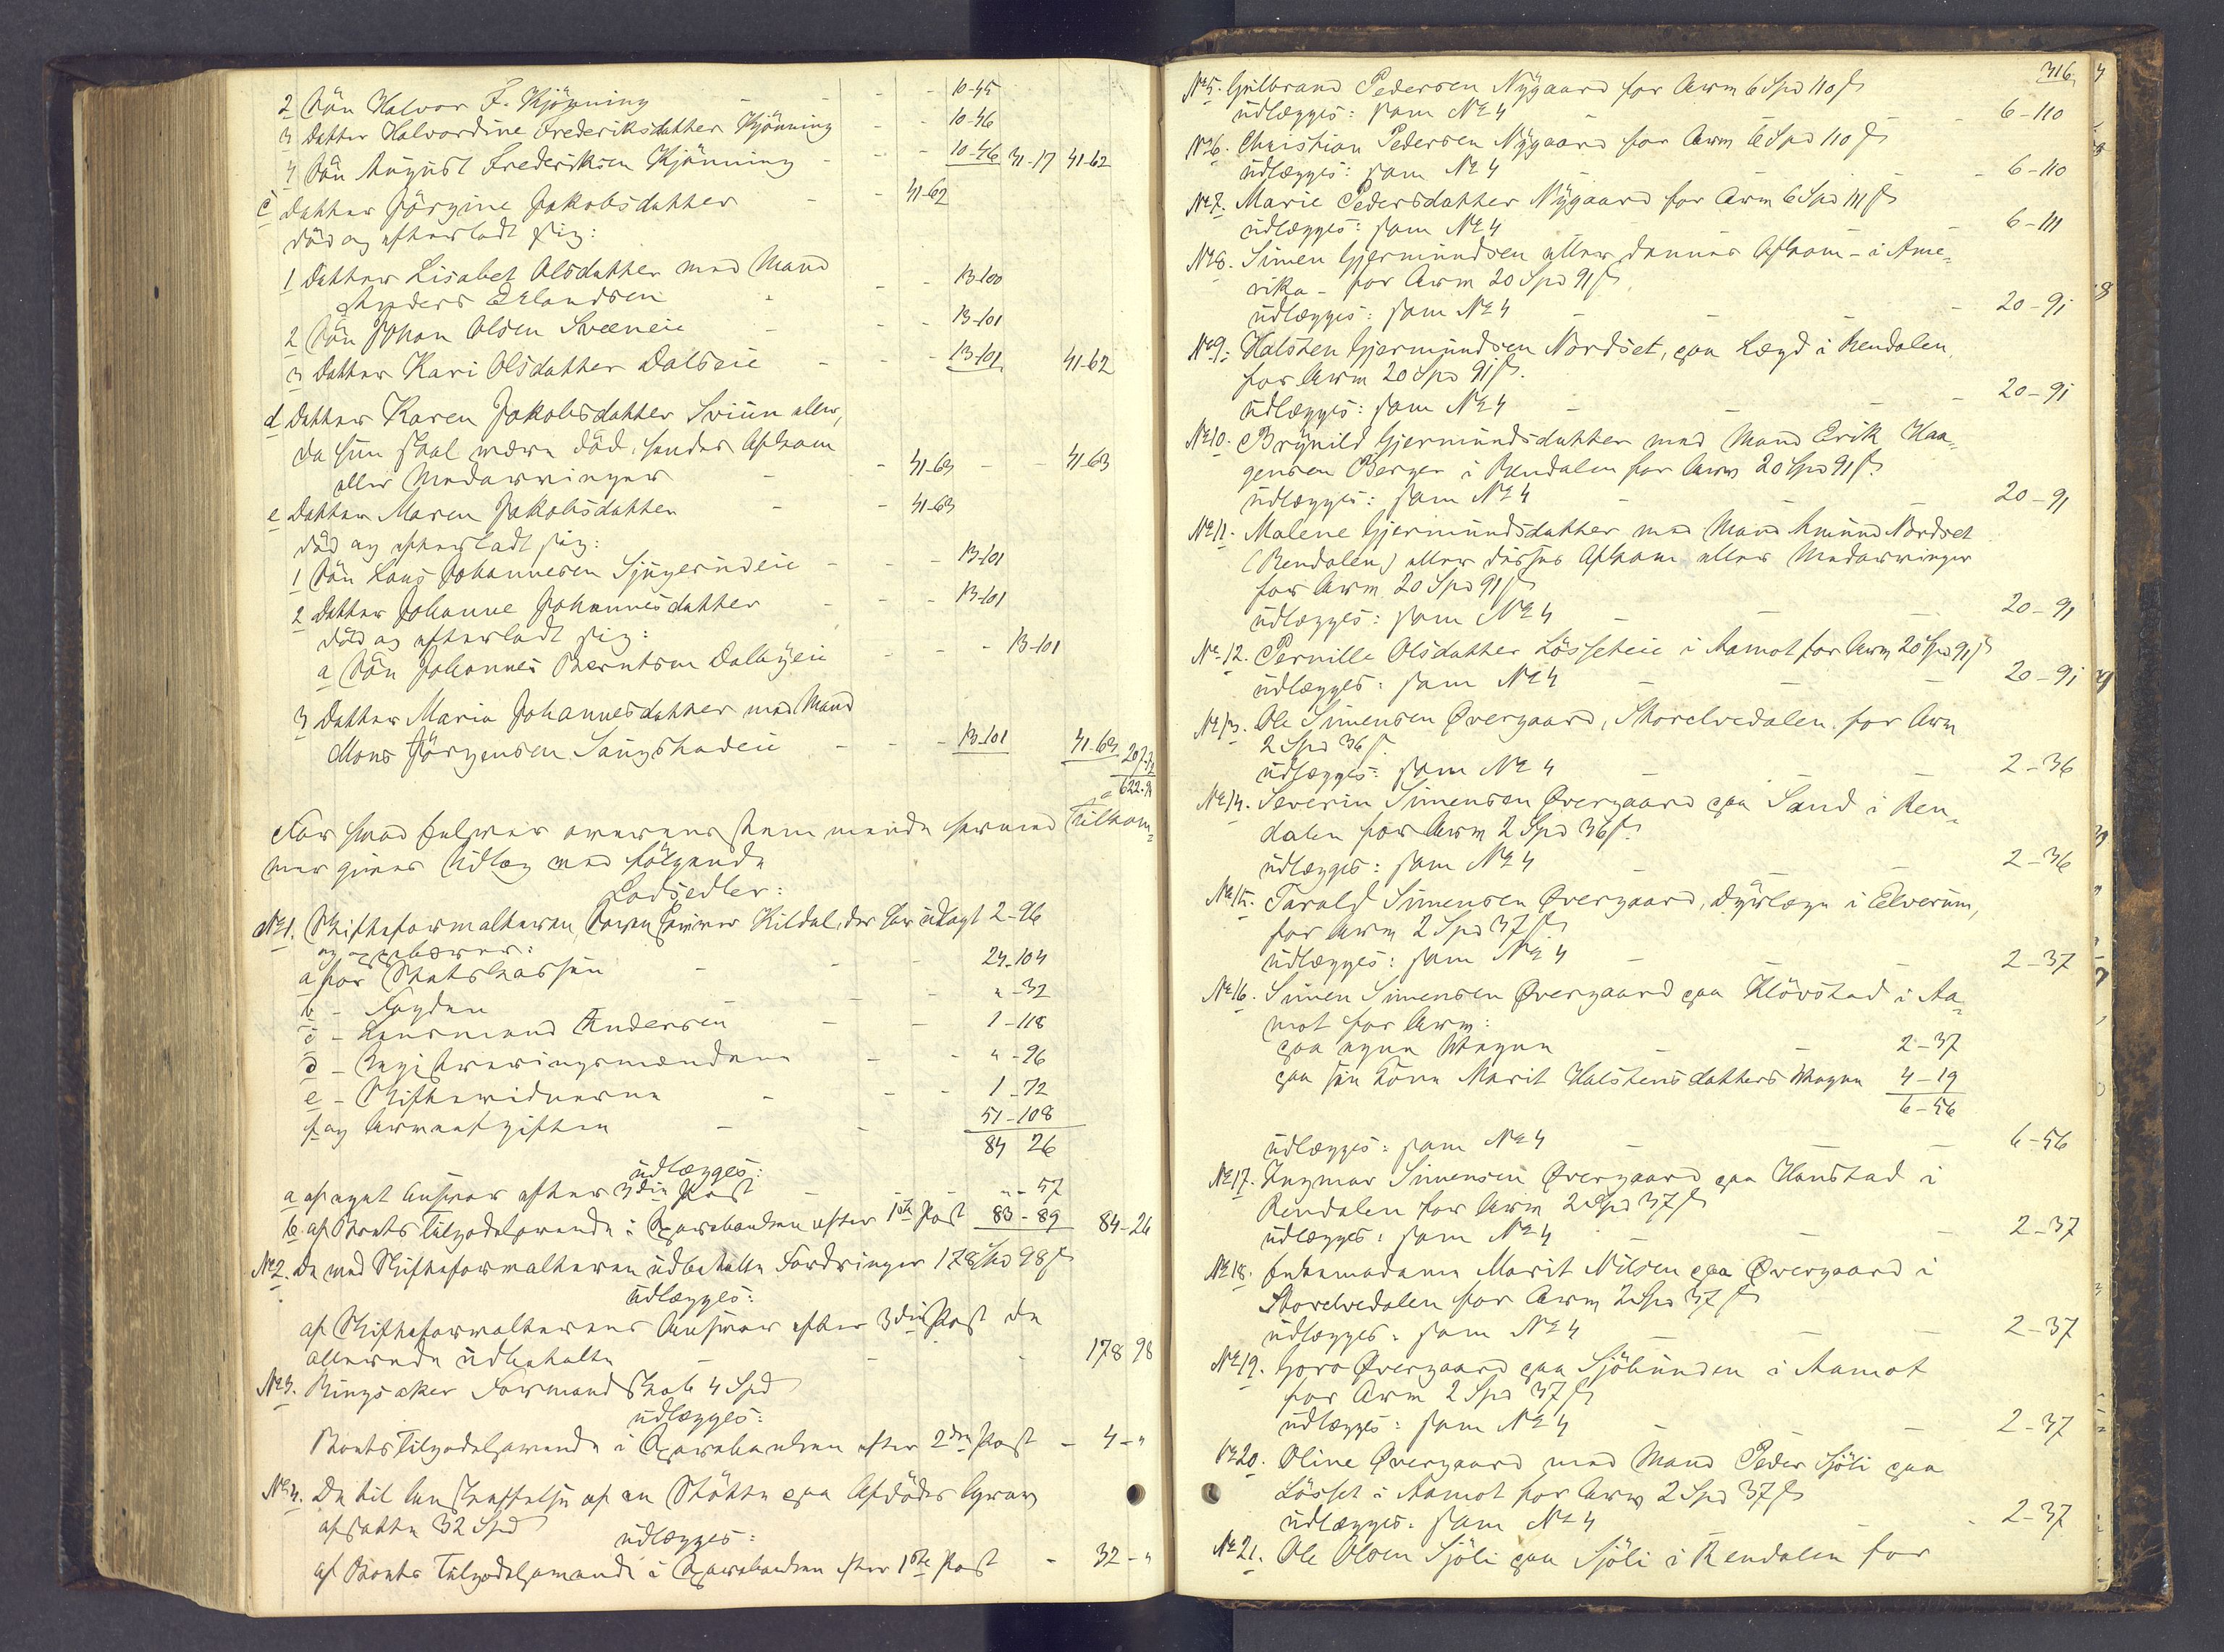 2 Søn Halvor F. Kjønning - - - - 10-45
3 Datter Halvordine Frederiksdatter Kjønning - - 10-46
4 Søn August Frederiksen Kjønning - - - 10-46 41-17 41-62
c Datter Jørgine Jakobsdatter - - 41-62
død og efterladt sig:
1 Datter Lisabet Olsdatter med Mand
Anders Erlandsen - - - 13-100
2 Søn Johan Olsen Sveeneie - - - 13-101
3 Datter Kari Olsdatter Dalseie - - - 13-101 41-62
d Datter Karen Jakobsdatter Sviün eller,
da hun skal være død, hendes Afkom
eller Medarvinger - - 41-63 - - 41-63
e Datter Maren Jakobsdatter - - 41-63
død og efterladt sig:
1 Søn Lars Johannesen Sjügerüdeie - - - 13-101
2 Datter Johanne Johannesdatter - - - 13-101
død og efterladt sig:
a Søn Johannes Berntsen Dalbyeie - - - 13-101
3 Datter Maria Johannesdatter med Mand
Mons Jörgensen Saugstadeie - - - 13-101 41-63 207-72
622-
For hvad enhver overensstemmende hermed Tilkom-
mer gives Udlæg med følgende
Lodsedler:
No 1. Skifteforvalteren, Kildal, der har udlagt 2-96
og oppebærer:
a for Statskassen - - - 24-104
b - Fogden - - " -32
c - Lensmand Andersen - - 1-118
d - Registreringsmændene - - " -96
e - Skiftevidnerne - - - 1-72
f og Arveafgiften - - 51-108
84 26
udlægges:
a af eget Ansvar efter 3die Post - - - " - 57
b af Boets Tilgodehavende i Sparebanken efter 1ste Post 83-89 84-26
No 2. De med Skifteforvalteren udbetalte Fordringer 178 Spd 98 s
udlægges:
af Skifteforvalterens Ansvar efter 3die Post de
allerede udbetalte - - - 178 98
No 3. Ringsaker Formandskab 4 Spd
udlægges:
Boets Tilgodehavende i Sparebanken efter 2den Post - 4 - "
No 4. De til Anskaffelse af en Støtte paa Afdødes Grav
afsatte 32 Spd
udlægges:
af Boets Tilgodehavende i Sparebanken efter 1ste Post - 32 - "
316
No 5. Gulbrand Pedersen Nygaard for Arv 6 Spd 110 s
udlægges: som No 4 - - - 6-110
No 6. Christian Pedersen Nygaard for Arv 6 Spd 110 s
udlægges: som No 4 - - - 6-110
No 7. Marie Pedersdatter Nygaard for Arv 6 Spd 111 s
udlægges: som No 4 - - - 6-111
No 8. Simen Gjermundsen eller dennes Afkom - i Ame-
rika - for Arv 20 Spd 91 s
udlægges: som No 4 - - - 20-91
No 9. Halsten Gjermundsen Nordset, paa Lægd i Rendalen
for Arv 20 Spd 91 s.
udlægges: som No 4 - - - 20-91
No 10. Brynild Gjermundsdatter med Mand Erik Haa-
gensen Berger i Rendalen for Arv 20 Spd 91 s
udlægges: som No 4 - - - 20-91
No 11. Malene Gjermundsdatter med Mand Amund Nordset
(Rendalen) eller disses Afkom eller Medarvinger
for Arv 20 Spd 91 s
udlægges: som No 4 - - - 20-91
No 12. Pernille Olsdatter Lösseteie i Aamot for Arv 20 Spd 91 s
udlægges: som No 4 - - - 20-91
No 13. Ole Simensen Övergaard, Storelvedalen for Arv
2 Spd 36 s.
udlægges: som No 4 - - - 2-36
No 14. Severin Simensen Övergaard paa Sand i Ren-
dalen for Arv 2 Spd 36 s
udlægges: som No 4 - - - 2-36
No 15. Tarald Simensen Övergaard, Dyrlæge i Elverum,
for Arv 2 Spd 37 s
udlægges: som No 4 - - - 2-37
No 16. Simen Simensen Övergaard paa Klövstad i Aa-
mot for Arv:
paa egne Vegne - - 2-37
paa sin Kone Marit Halstensdatters Vegne 4-19
6-56
udlægges: som No 4 - - - 6-56
No 17. Ingmar Simensen Övergaard paa Hanstad i
Rendalen for Arv 2 Spd 37 s
udlægges: som No 4 - - - 2-37
No 18. Enkemadame Marit Nilsen paa Övergaard i
Storelvedalen for Arv 2 Spd 37 s
udlægges: som No 4 - - - 2-37
No 19. Goro Övergaard paa Sjöbünden i Aamot
for Arv 2 Spd 37 s
udlægges: som No 4 - - 2-37
No 20. Oline Övergaard med Mand Peder Sjöli paa
Lösset i Aamot for Arv 2 Spd 37 s
udlægges: som No 4 - - 2-37
No 21. Ole Olsen Sjöli paa Sjöli i Rendalen for